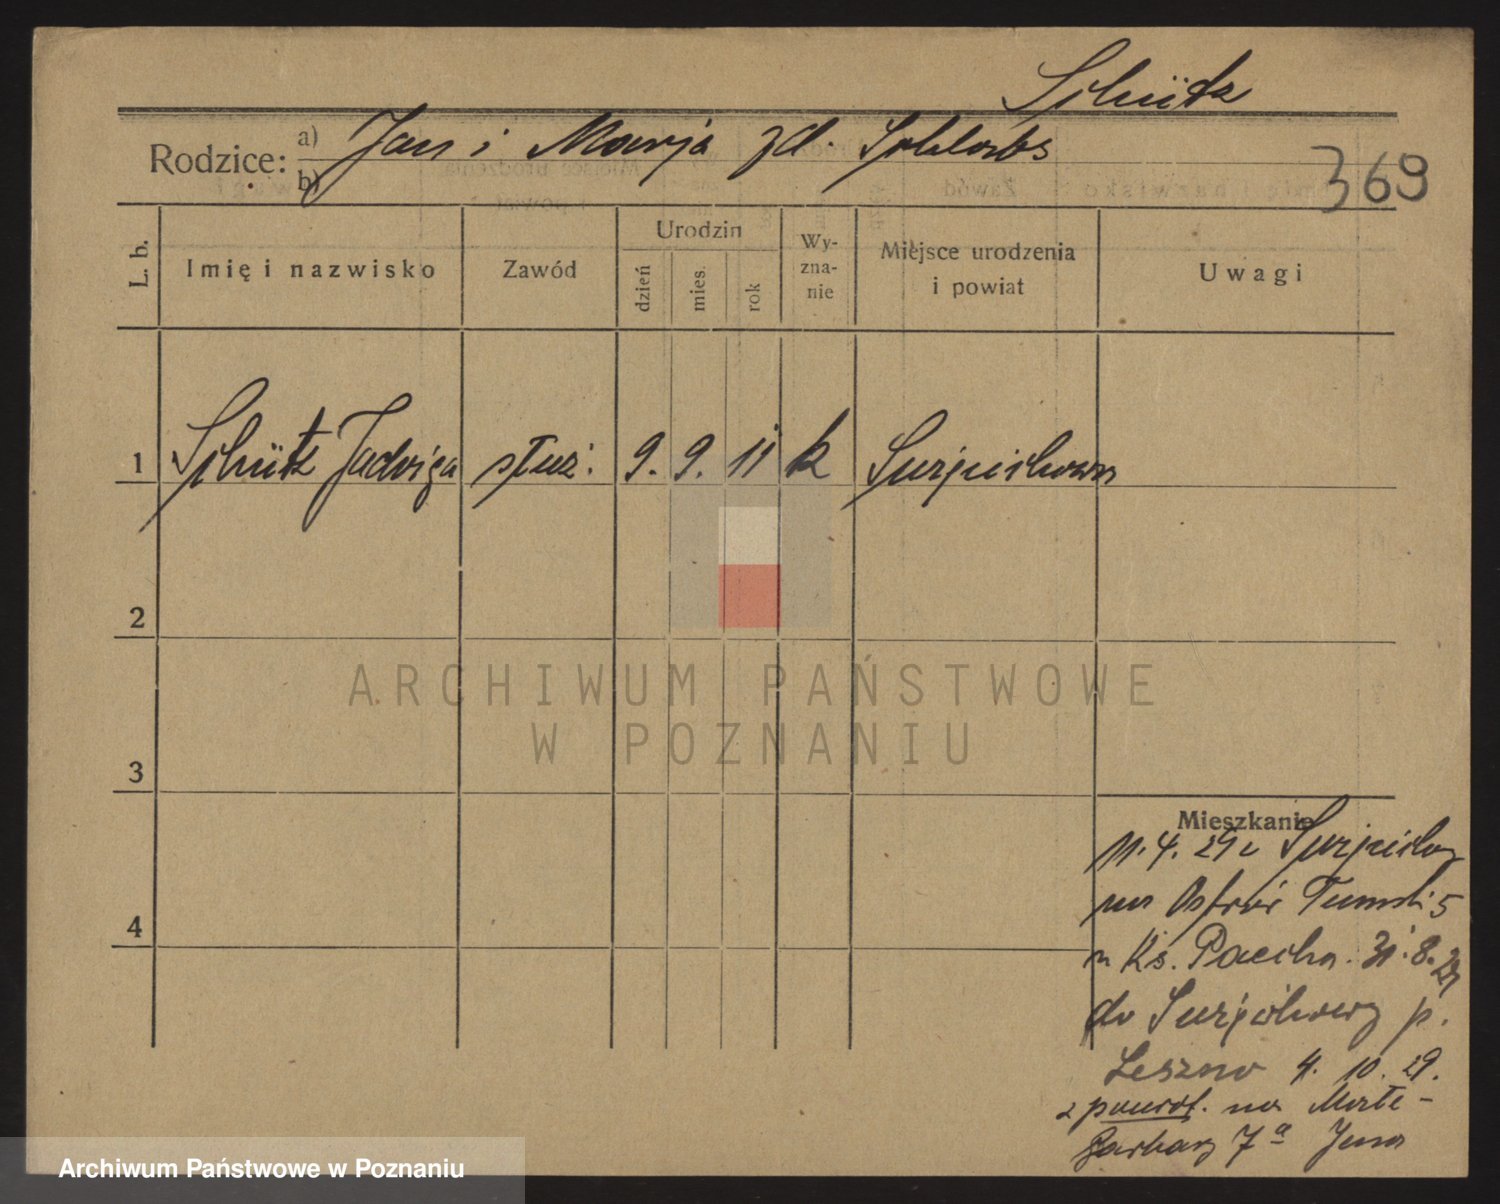 Schütz
Rodzice: a) b) Jan i Marja zd.
369
L. b.
Imię i nazwisko
Zawód
Urodzin
dzień
mies.
rok
Wy-
zna-
nie
Miejsce urodzenia
i powiat
Uwagi
1 Schütz Jadwiga służ. 9. 9. 11 k
2
3
4
ARCHIWUM PAŃSTWOWE
W POZNANIU
Mieszkanie
11. 4. 29 z
na Ostrów Tumski 5
Ks. Pacha. 31. 8. 29
do p.
Leszno 4. 10. 29.
z powrot. na Małe-
Garbary 7a
Archiwum Państwowe w Poznaniu